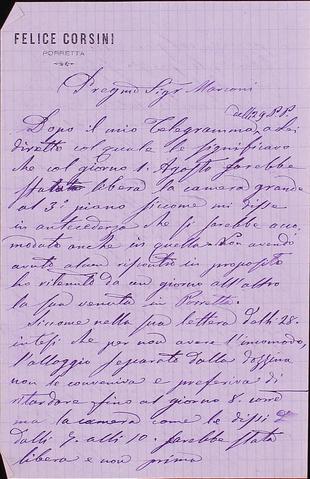 FELICE CORSINI
PORRETTA
Pregmo Sigr Marconi
Dopo il mio Telegramma, a Lei
diretto col quale Le significavo
che col giorno 1. Agosto sarebbe
stata libera la camera grande
al 3° piano siccome mi disse
in antecedenza che si sarebbe acco,
modato anche in quella. Non avendo
avuto alcun riscontro in proposito
ho ritenuto da un giorno all'altro
la sua venuta in Porretta.
Siccome nella sua lettera delli 28.
intesi che per non avere l'incomodo,
l'alloggio separato dalla
non le conveniva e preferiva di
ritardare fino al giorno 8. corre
ma la camera come le dissi
dalli 9. alli 10. sarebbe stata
libera e non prima